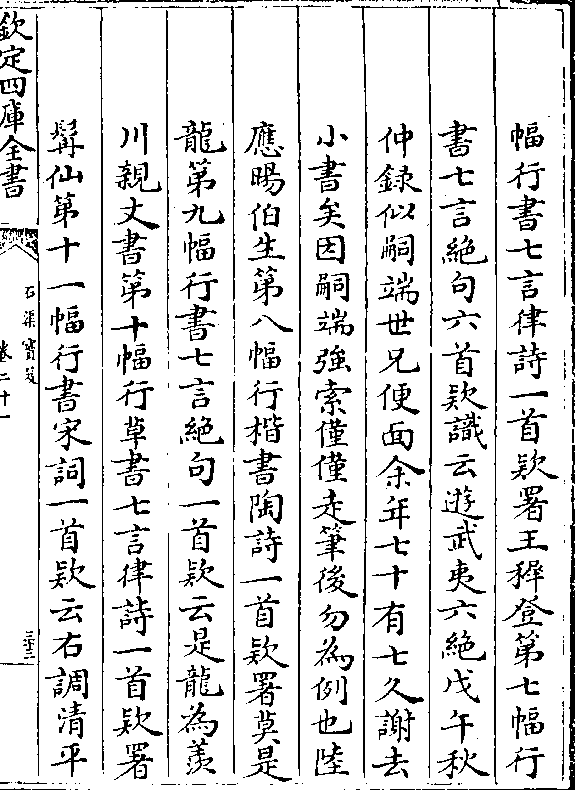 幅行書七言律詩一首欵署王穉登第七幅行
書七言絶句六首欵識云遊武夷六絶戊午秋
仲録似嗣端世兄便面余年七十有七久謝去
小書矣因嗣端強索僅僅走筆後勿為例也陸
應暘伯生第八幅行楷書陶詩一首欵署莫是
龍第九幅行書七言絶句一首欵云是龍為羨
川親丈書第十幅行草書七言律詩一首欵署
髯仙第十一幅行書宋詞一首欵云右調清平
欽定四庫全書
石渠寶笈
卷二十一
三十三